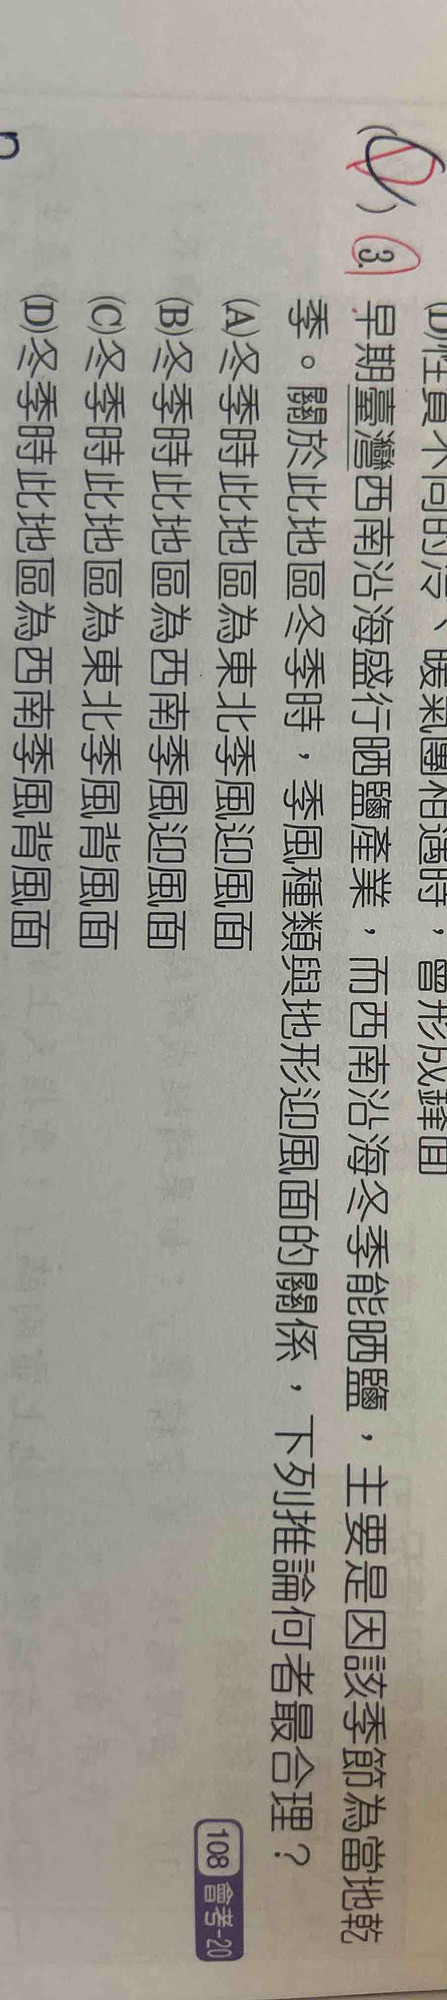 (D)性質不同的冷、暖氣團相遇時,會形成鋒面
( ) 3. 早期臺灣西南沿海盛行晒鹽產業,而西南沿海冬季能晒鹽,主要是因該季節為當地乾
季。關於此地區冬季時,季風種類與地形迎風面的關係,下列推論何者最合理?
108 會考-20
(A)冬季時此地區為東北季風迎風面
(B)冬季時此地區為西南季風迎風面
(C)冬季時此地區為東北季風背風面
(D)冬季時此地區為西南季風背風面